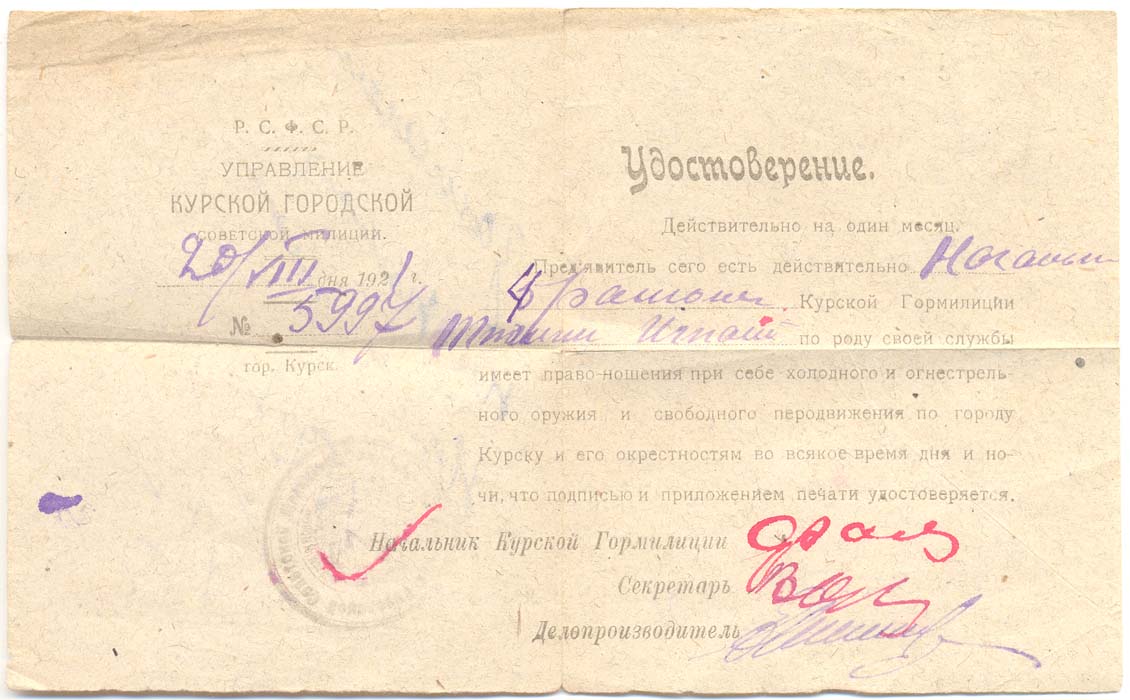 Р. С. Ф. С. Р.
УПРАВЛЕНИЕ
КУРСКОЙ ГОРОДСКОЙ
СОВЕТСКОЙ МИЛИЦИИ.
20/VIII дня 1921 г.
№ 5997
гор. Курск.
Удостоверение.
Действительно на один месяц.
Пред'явитель сего есть действительно
Курской Гормилиции
по роду своей службы
имеет право-ношения при себе холодного и огнестрель-
ного оружия и свободного перодвижения по городу
Курску и его окрестностям во всякое время дня и но-
чи, что подписью и приложением печати удостоверяется.
Начальник Курской Гормилиции
Секретарь
Делопроизводитель